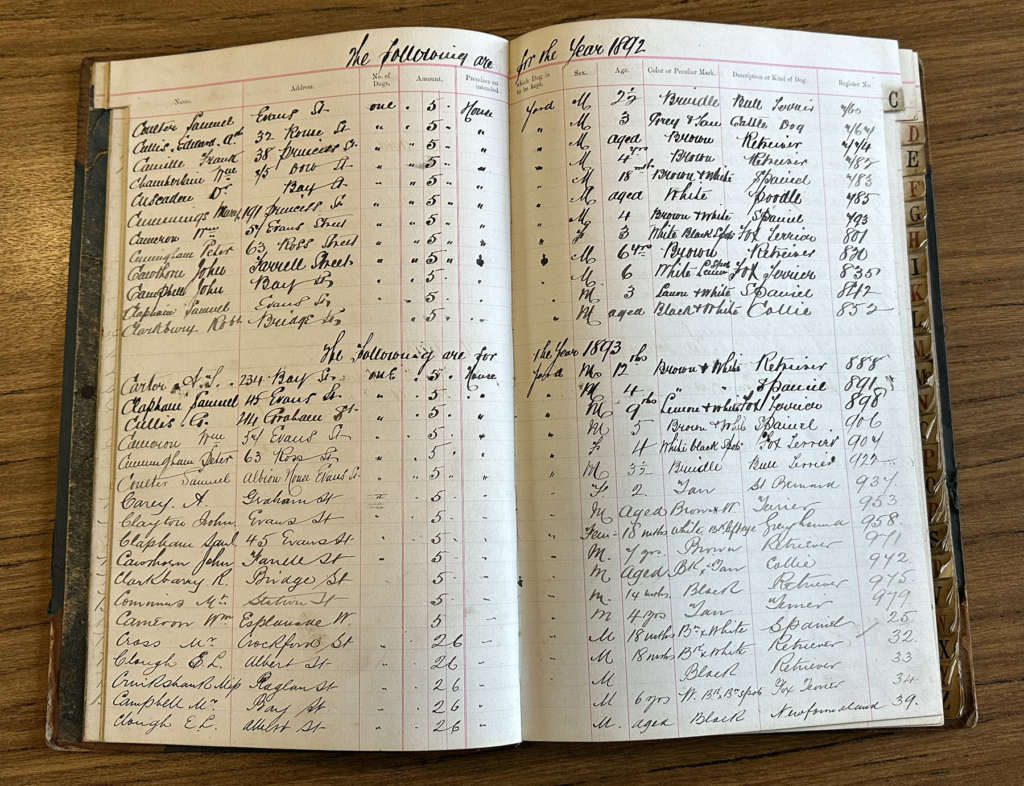 The following are for the Year 1892
Name. Address. No. of Dogs. Amount. Premises on intended which Dog is to be kept. Sex. Age. Color or Peculiar Mark. Description or Kind of Dog. Register No.
Coulter Samuel Evans St one 5 House Yard M 2½ Brindle Bull Terrier 760
Cullis Edward 32 Rouse St " 5 " " M 3 Grey & Tan Cattle Dog 767
Camille Frank 38 Princess St " 5 " " M aged Brown Retriever 774
Chamberlain Wm 75 Dow St " 5 " " M 4 yrs Brown Retriever 782
Cuscaden Dr Bay St " 5 " " M 18 mths Brown & White Spaniel 783
Cummings Mary 191 Princess St " 5 " " M aged White Poodle 785
Cameron Wm 54 Evans Street " 5 " " M 4 Brown & White Spaniel 793
Cunningham Peter 63 Ross Street " 5 " " F 3 White Black Spots Fox Terrier 801
Cawthorn John Farrell Street " 5 " " M 6 yrs Brown Retriever 830
Campbell John Bay St " 5 " " M 6 White Lemon Spots Fox Terrier 835
Clapham Samuel Evans St " 5 " " M 3 Lemon & White Spaniel 842
Clarkbury Robt Bridge St " 5 " " M aged Black & White Collie 852
The following are for the Year 1893
Carter A. 234 Bay St one 5 House Yard M 12 mths Brown & White Retriever 888
Clapham Samuel 45 Evans St " 5 " " M 4 " " Spaniel 891
Cullis G. 244 Graham St " 5 " " M 9 mths Lemon & White Fox Terrier 898
Cameron Wm 54 Evans St " 5 " " M 5 Brown & White Spaniel 906
Cunningham Peter 63 Ross St " 5 " " F 4 White black spots Fox Terrier 907
Coulter Samuel Albion House Evans St " 5 " " M 3½ Brindle Bull Terrier 922
Carey A. Graham St " 5 " " F 2 Tan St Bernard 937
Clayton John Evans St 5 " M Aged Brown & W. Terrier 953
Clapham Saml 45 Evans St 5 " Fem 18 mths white Bk left eye Greyhound 958
Cawthorn John Farrell St 5 " M 7 yrs Brown Retriever 971
Clarkbarry R. Bridge St 5 " M Aged Bk & Tan Collie 972
Commins Mr Station St 5 " M 14 mths Black Retriever 975
Cameron Wm Esplanade W 5 " M 4 yrs Tan Terrier 979
Cross Mr Crockford St 2 6 " M 18 mths Bn & White Spaniel 25
Clough E.L. Albert St 2 6 " M 18 mths Bn & White Retriever 32
Cruikshank Miss Raglan St 2 6 " M Black Retriever 33
Campbell Mr Bay St 2 6 " M 6 yrs W. Bk. Bn spots Fox Terrier 34
Clough E.L. Albert St 2 6 " M aged Black Newfoundland 39.
C
D
E
F
G
H
I
K